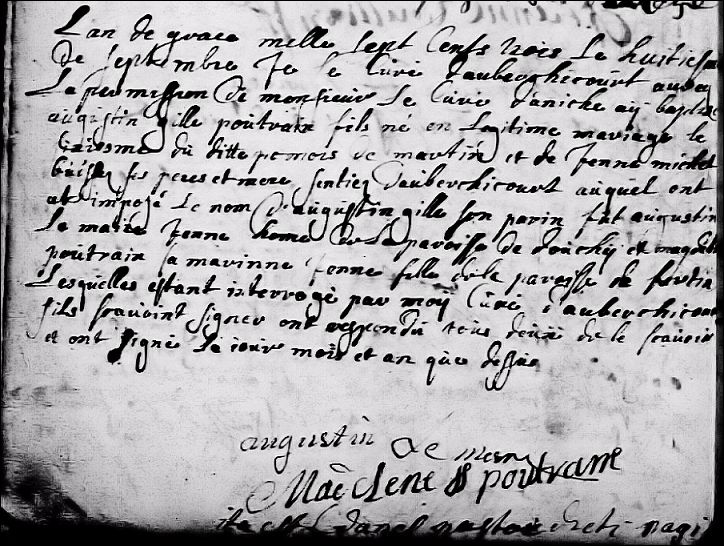 Lan de grace mille sept Cents trois Le huitiesme
de septembre Je le Curé dauberchicourt avecq
La permission de monsieur Le Curé daniche aÿ baptisé
augustin gille poutrain fils né en Legitime mariage le
du ditte mois de martin et de Jenne michel
ses peres et mere sentier dauberchicourt auquel ont
at imposé Le nom daugustin gille son parin fut augustin
Le maire Jenne home de la paroisse de douchÿ et magdel
poutrain sa marinne Jenne fille de le paroisse de fertin
Lesquelles estant interrogé par moÿ Curé dauberchicourt
sils scavoint signer ont respondu tous deux de le scavoir
et ont signé Le iour mois et an que dessus
augustin Le mere
Maёclene poutranne
pastor